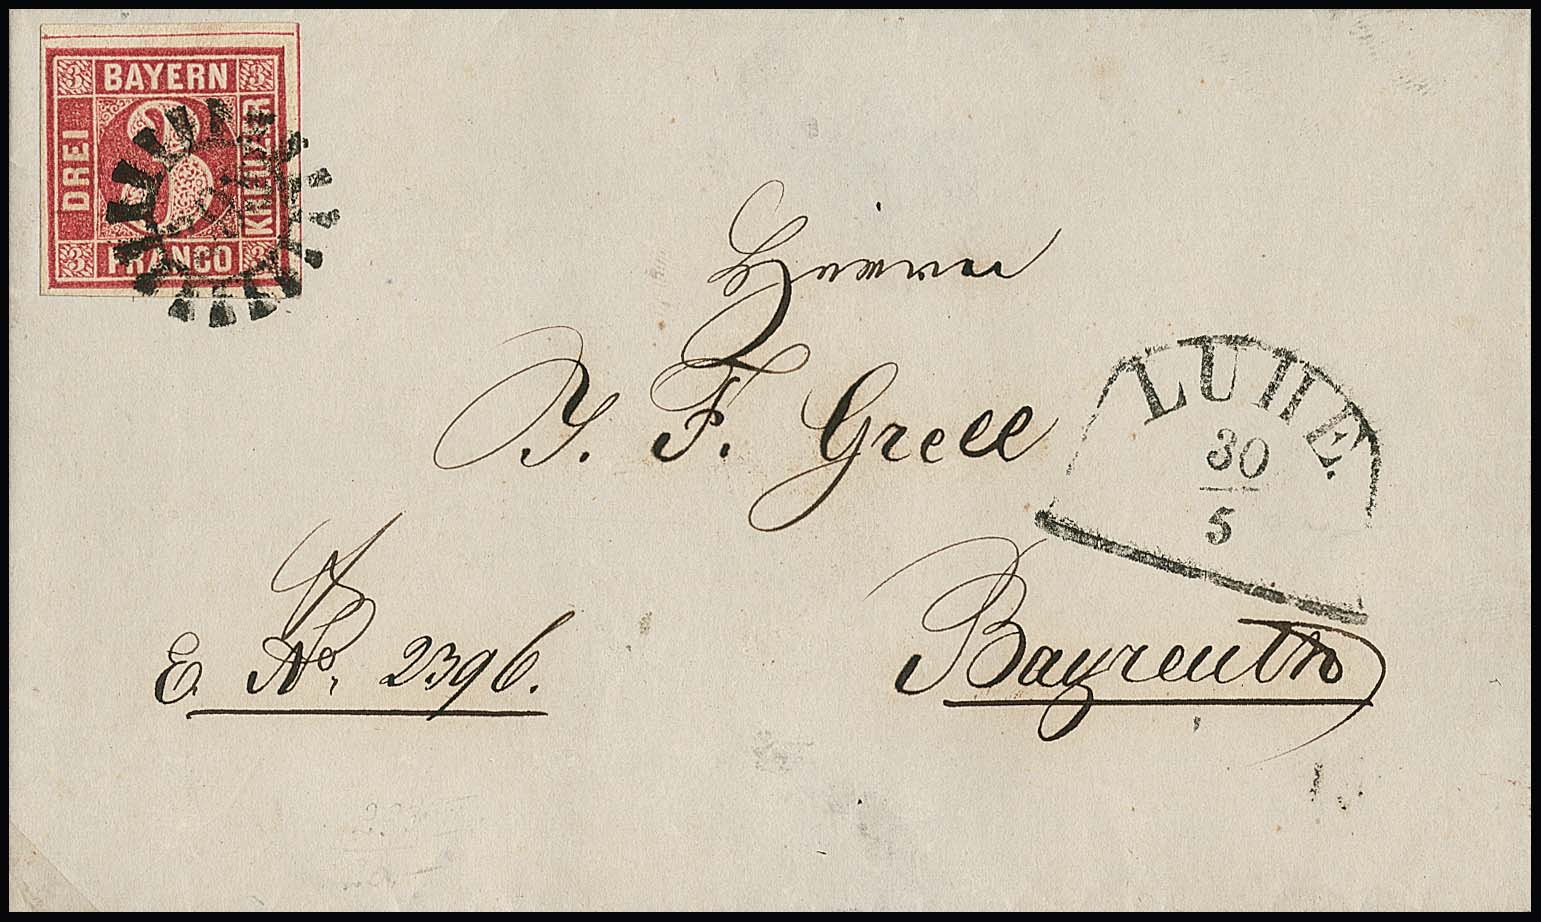 3 BAYERN 3
DREI
3
KREUZER
3 FRANCO 3
Herrn
J. F. Grell
LUHE.
30
5
E. No. 2396.
Bayreuth